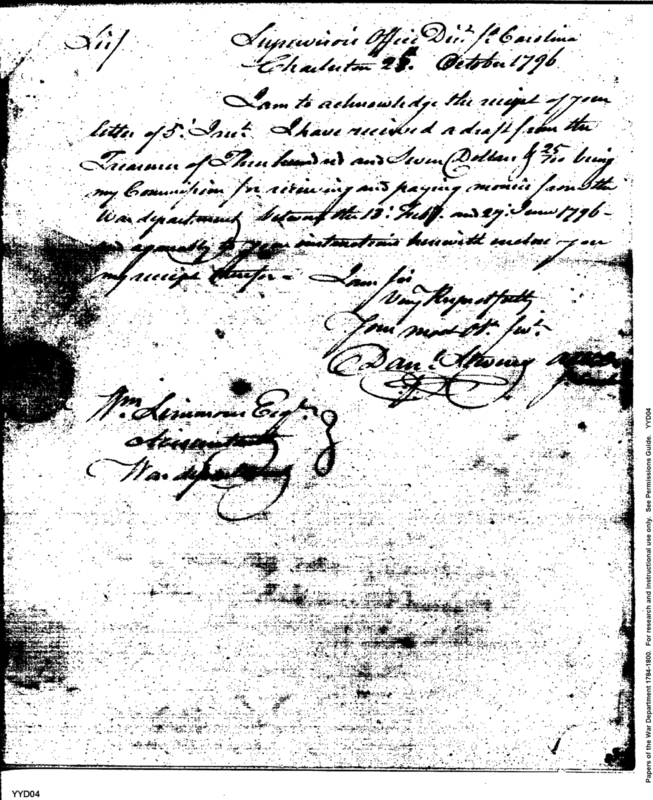 Sir/ Supervisor's Office Dist. So Carolina
Charleston October 1796
I am to acknowledge the receipt of your
letter of 5t. Inst. I have received a draft from the
Treasurer of Three hundred and Seven Dollars & 25/100 being
my Commission for receiving and paying monies from the
War department between the 13t. Feby. and 29t. June 1796 -
and agreeably to your instructions herewith inclose you
my receipt therefor -
I am Sir
Very Respectfully
Your most Ob. Servt.
Danl. Stevens
Wm. Simmons Esqr.
Accountant
War department
YYD04
Papers of the War Department 1784-1800. For research and instructional use only. See Permissions Guide. YYD04